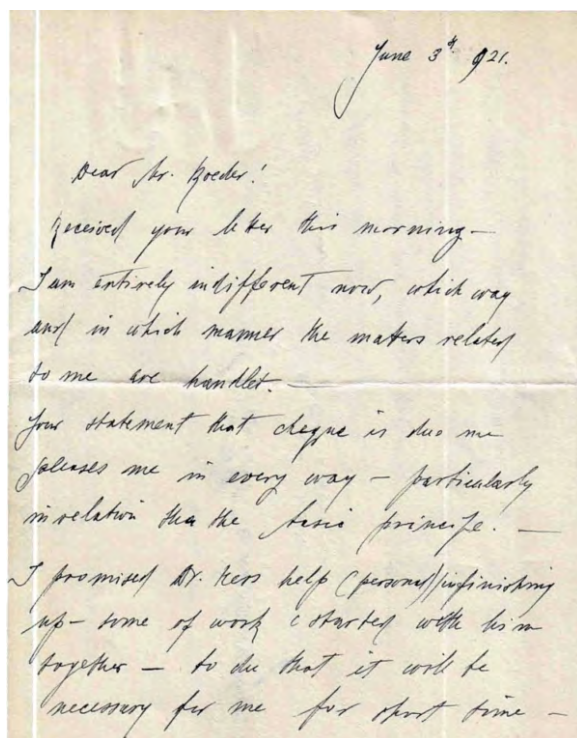 June 3th 921.
Dear Mr. Roeder!
Received your letter this morning —
I am entirely indifferent now, which way
and in which manner the matters related
to me are handlet. —
Your statement that cheque is due me
pleases me in every way — particularly
in relation tha the basic principe. —
I promised Dr. Kers help (personal) in finishing
up — some of work I started with him
together — to do that it will be
necessary for me for short time —